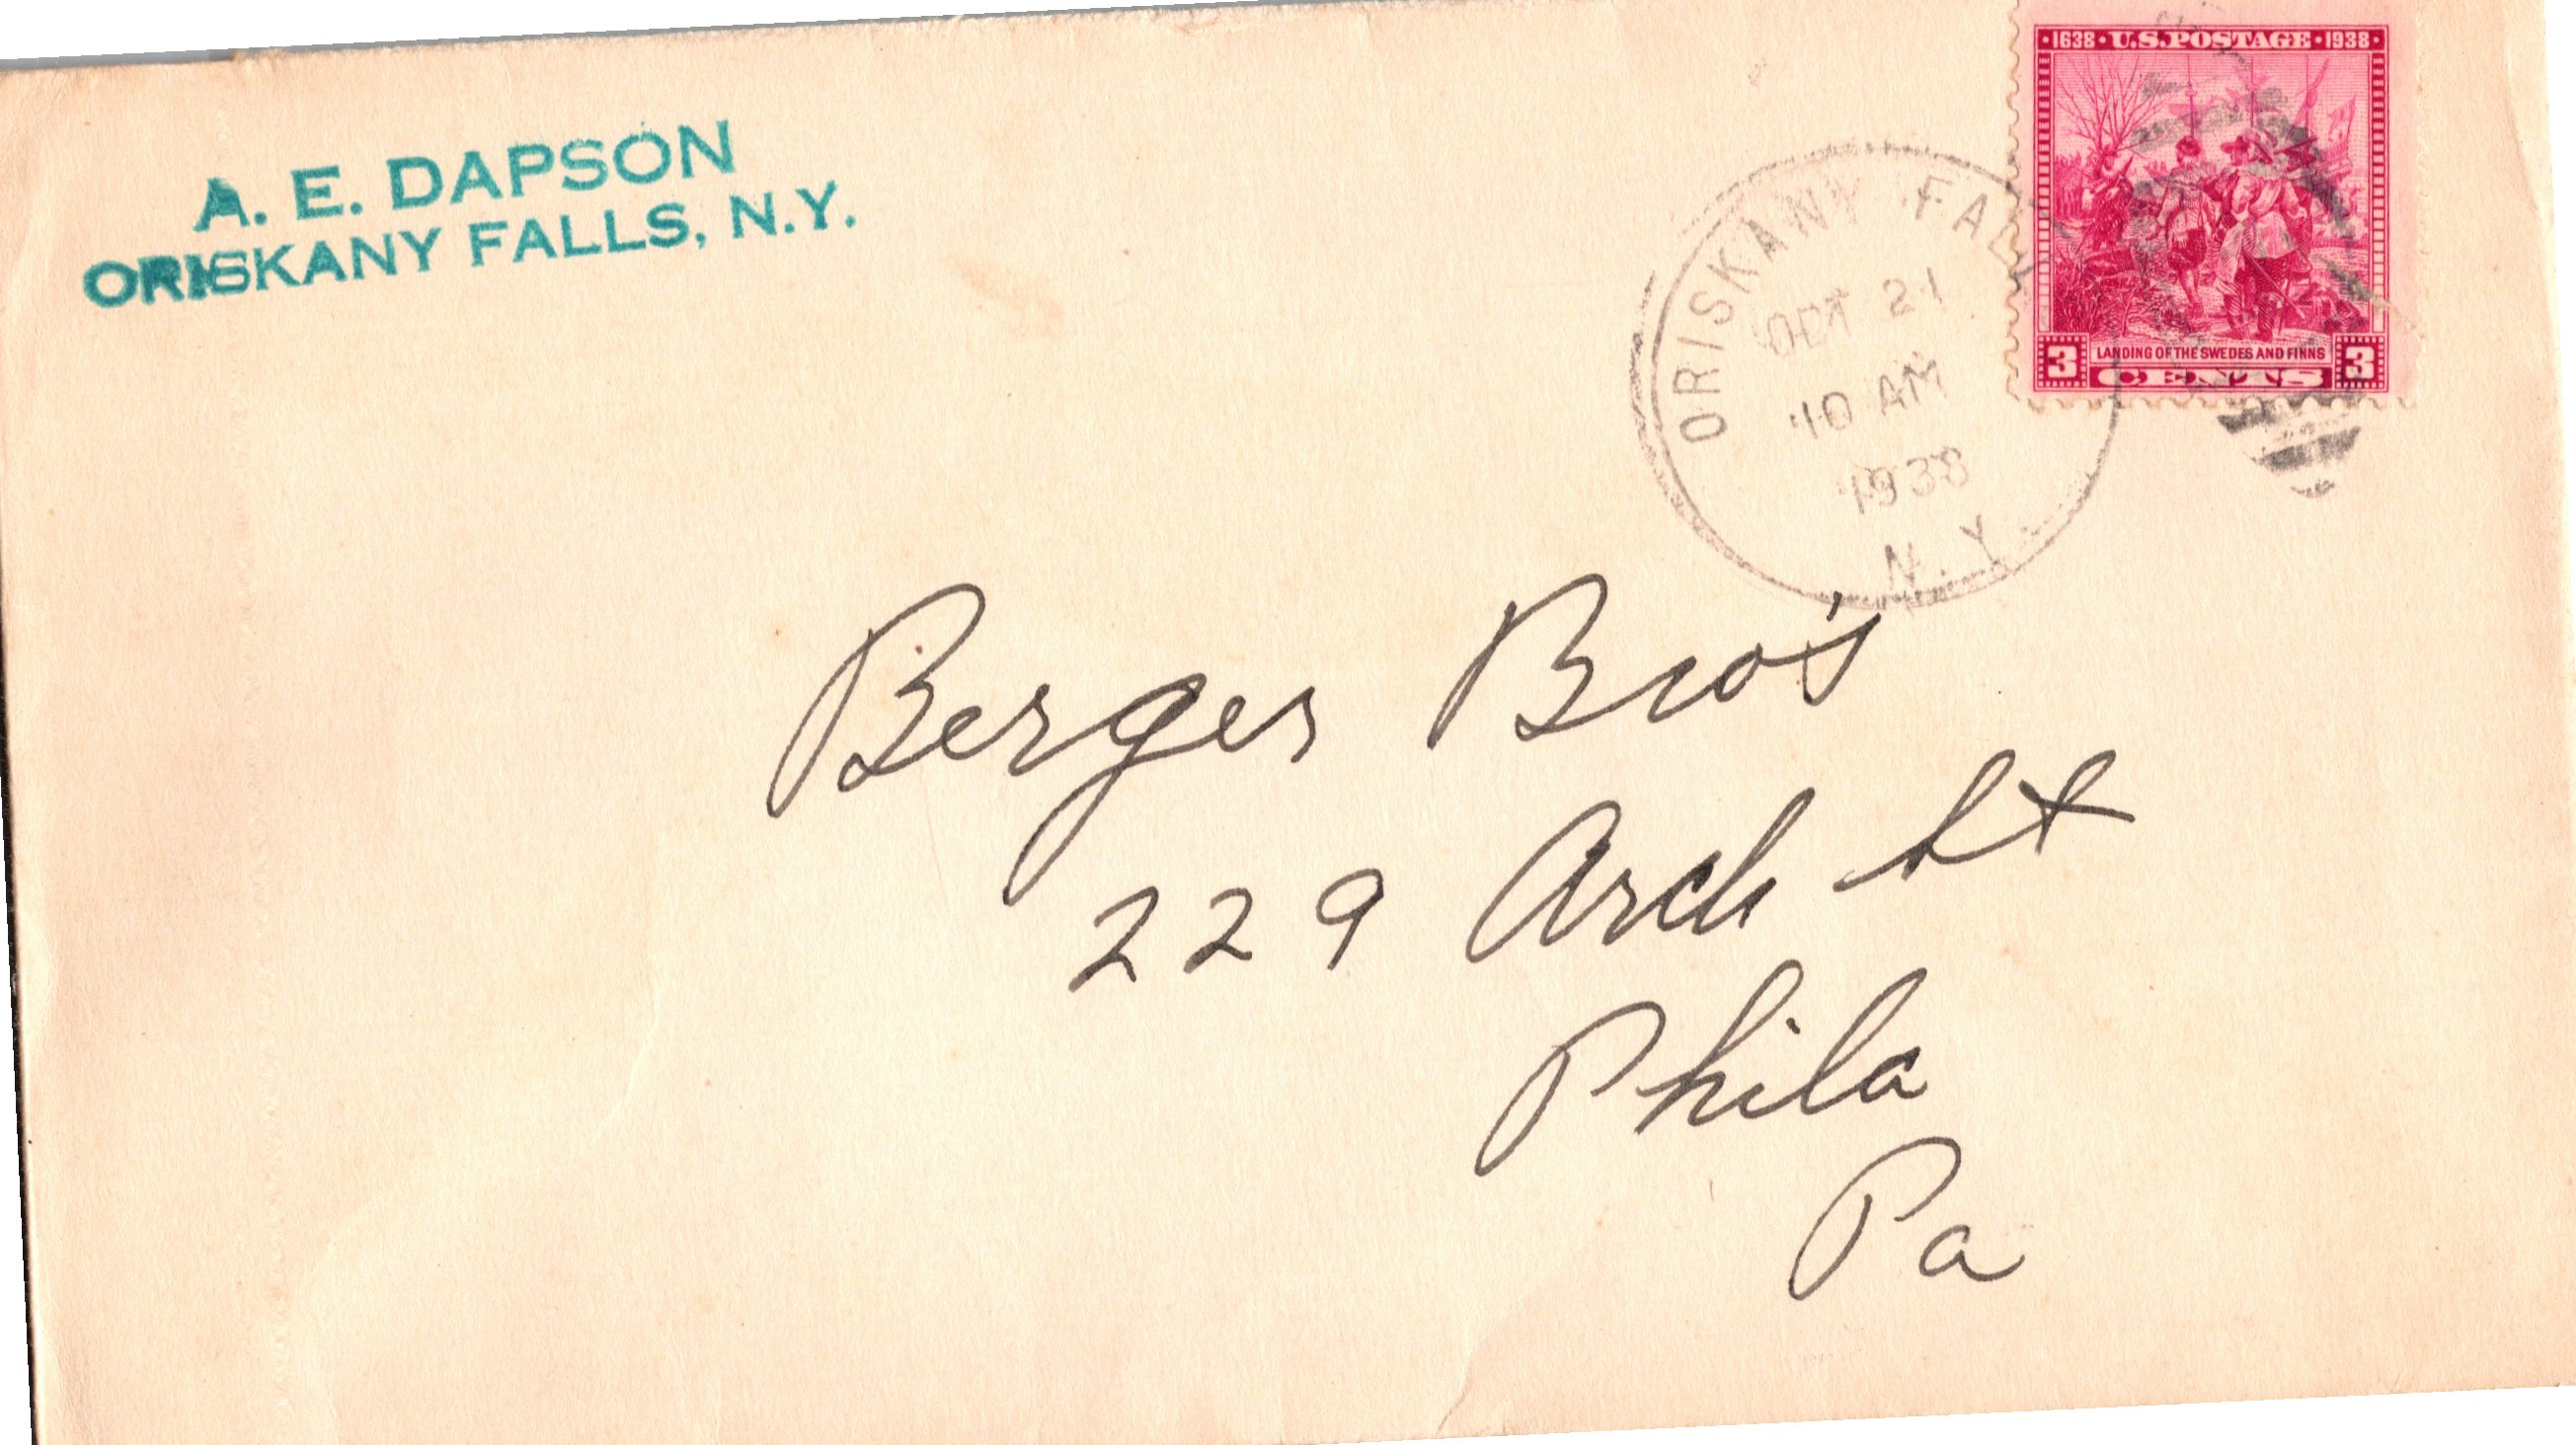 A. E. DAPSON
ORISKANY FALLS, N.Y.
·1638· U.S. POSTAGE ·1938·
LANDING OF THE SWEDES AND FINNS
3 CENTS 3
ORISKANY FALLS
OCT 21
10 AM
1938
N.Y.
Berger Bro's
229 Arch St
Phila
Pa